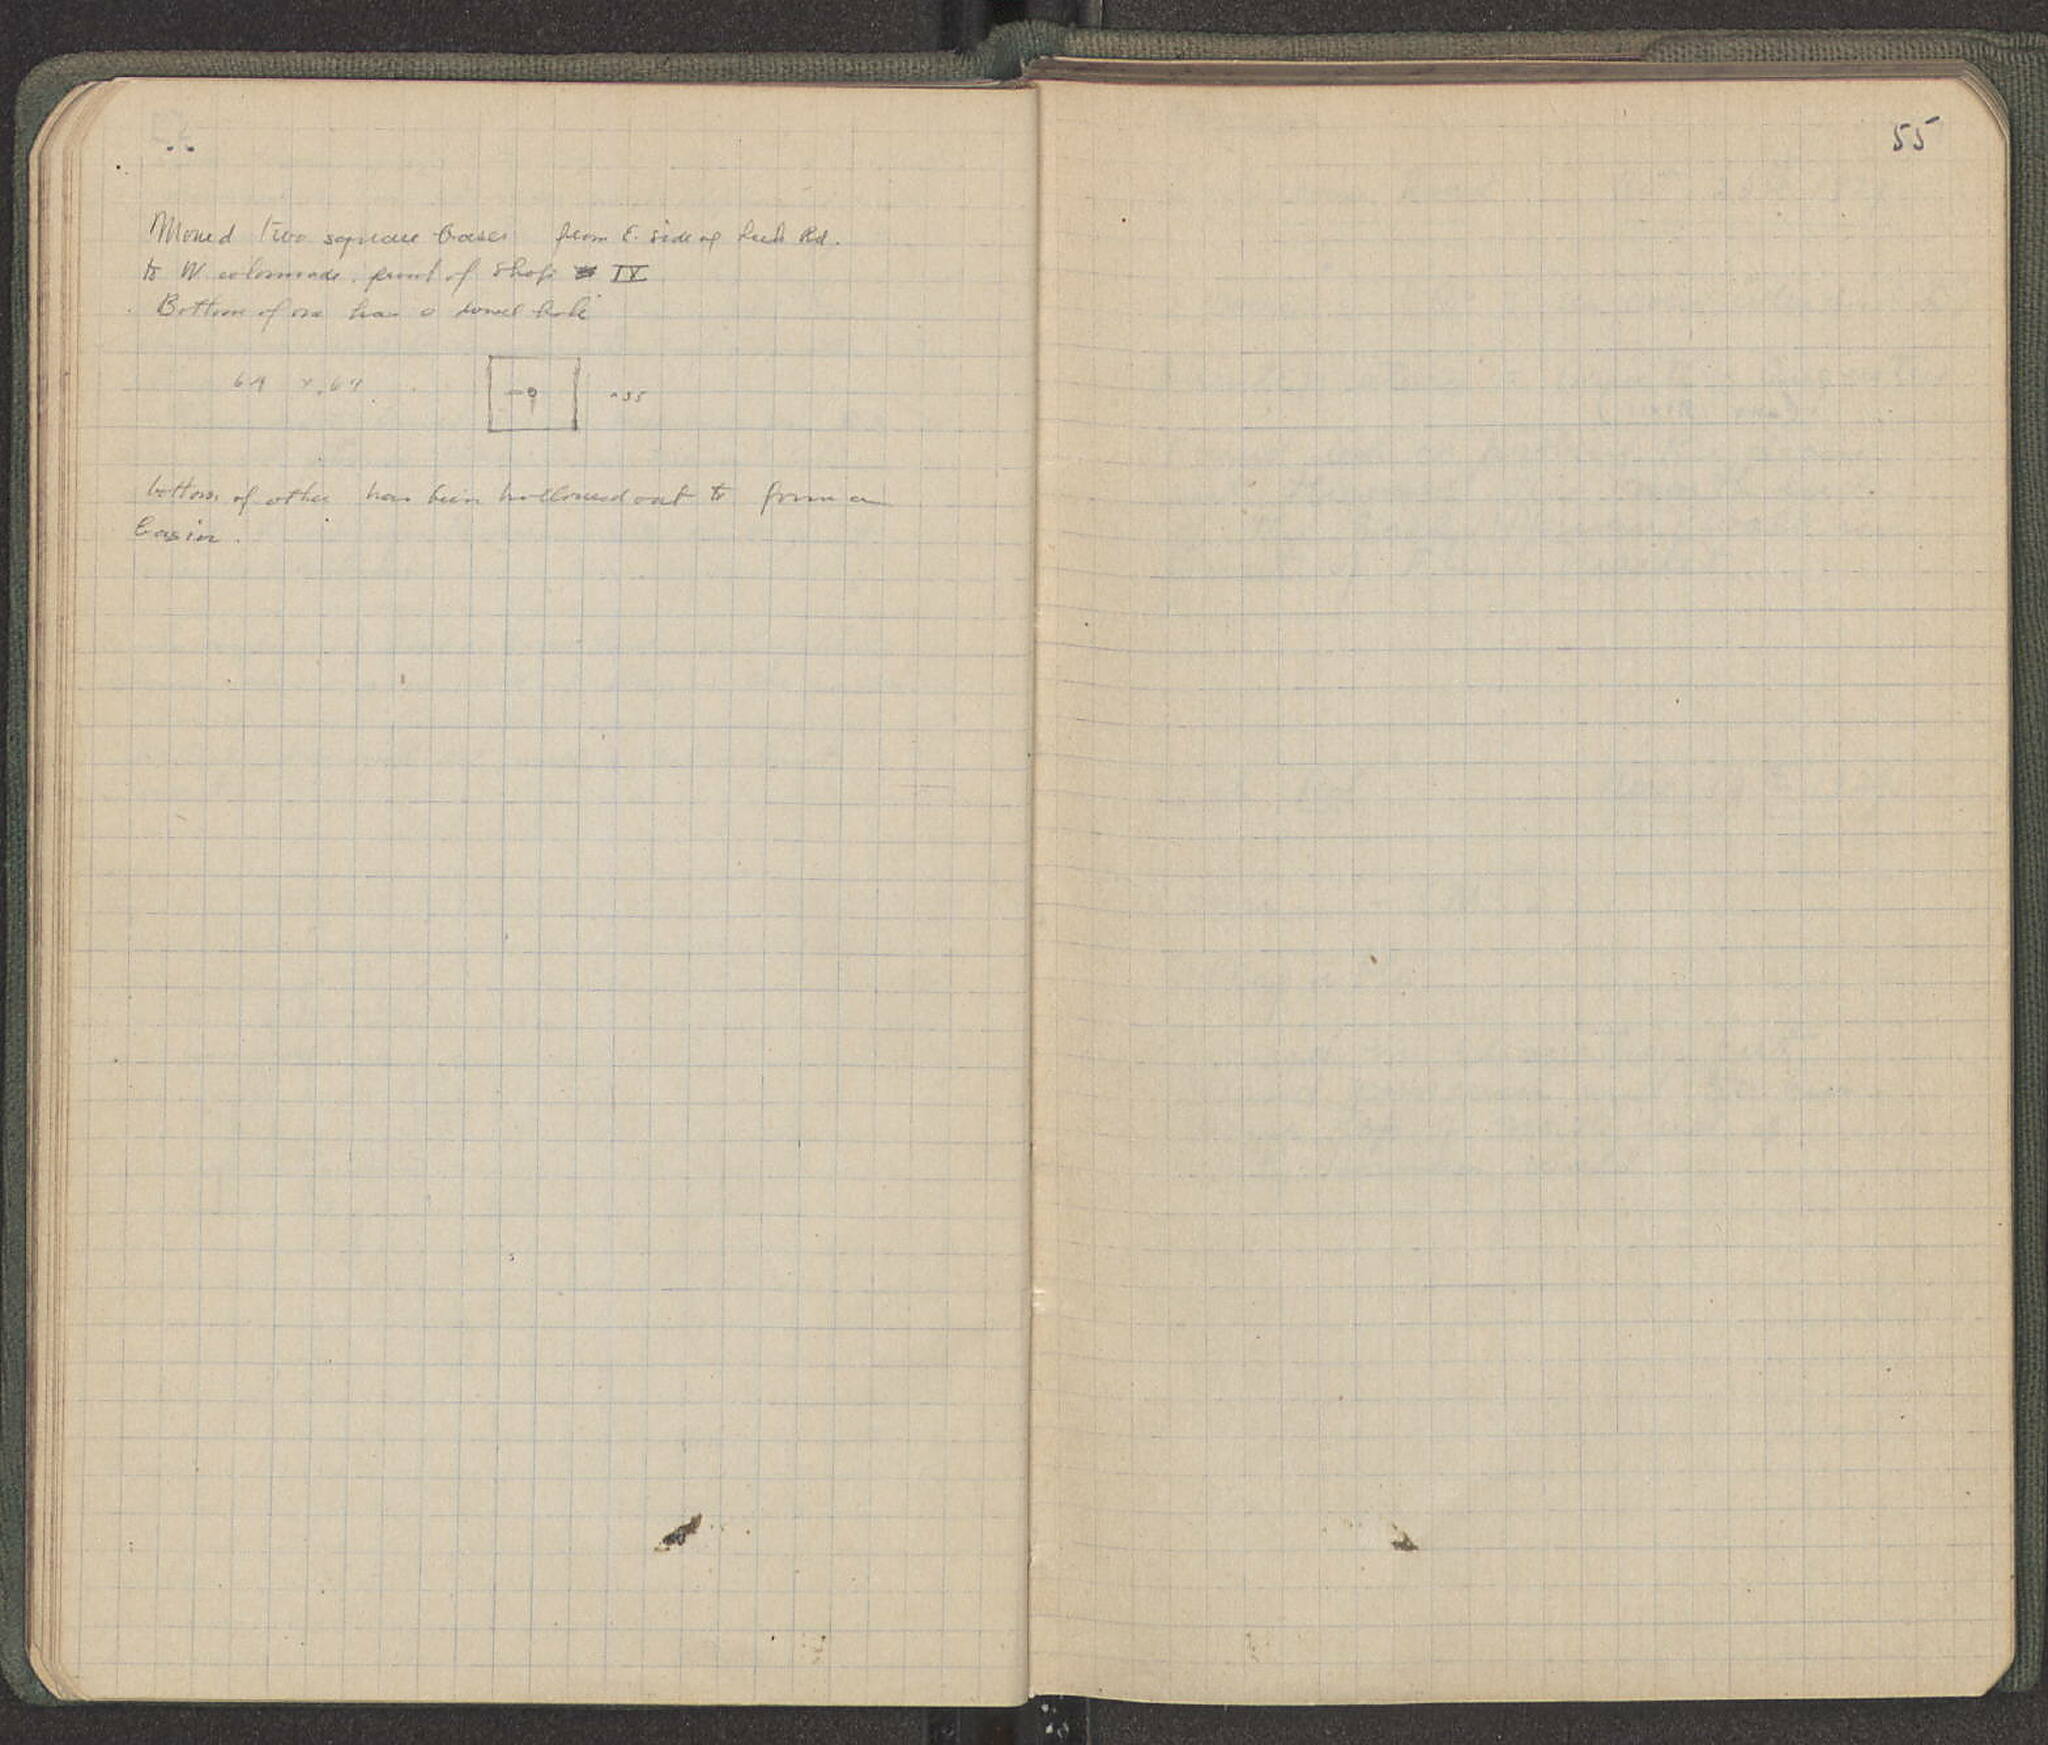 Moved two square bases from E. side of Lech Rd.
to W colonnade. front of Shop IV
Bottom of one has a dowel hole
.64 x .64 .35
bottom of other has been hollowed out to form a
basin.
55